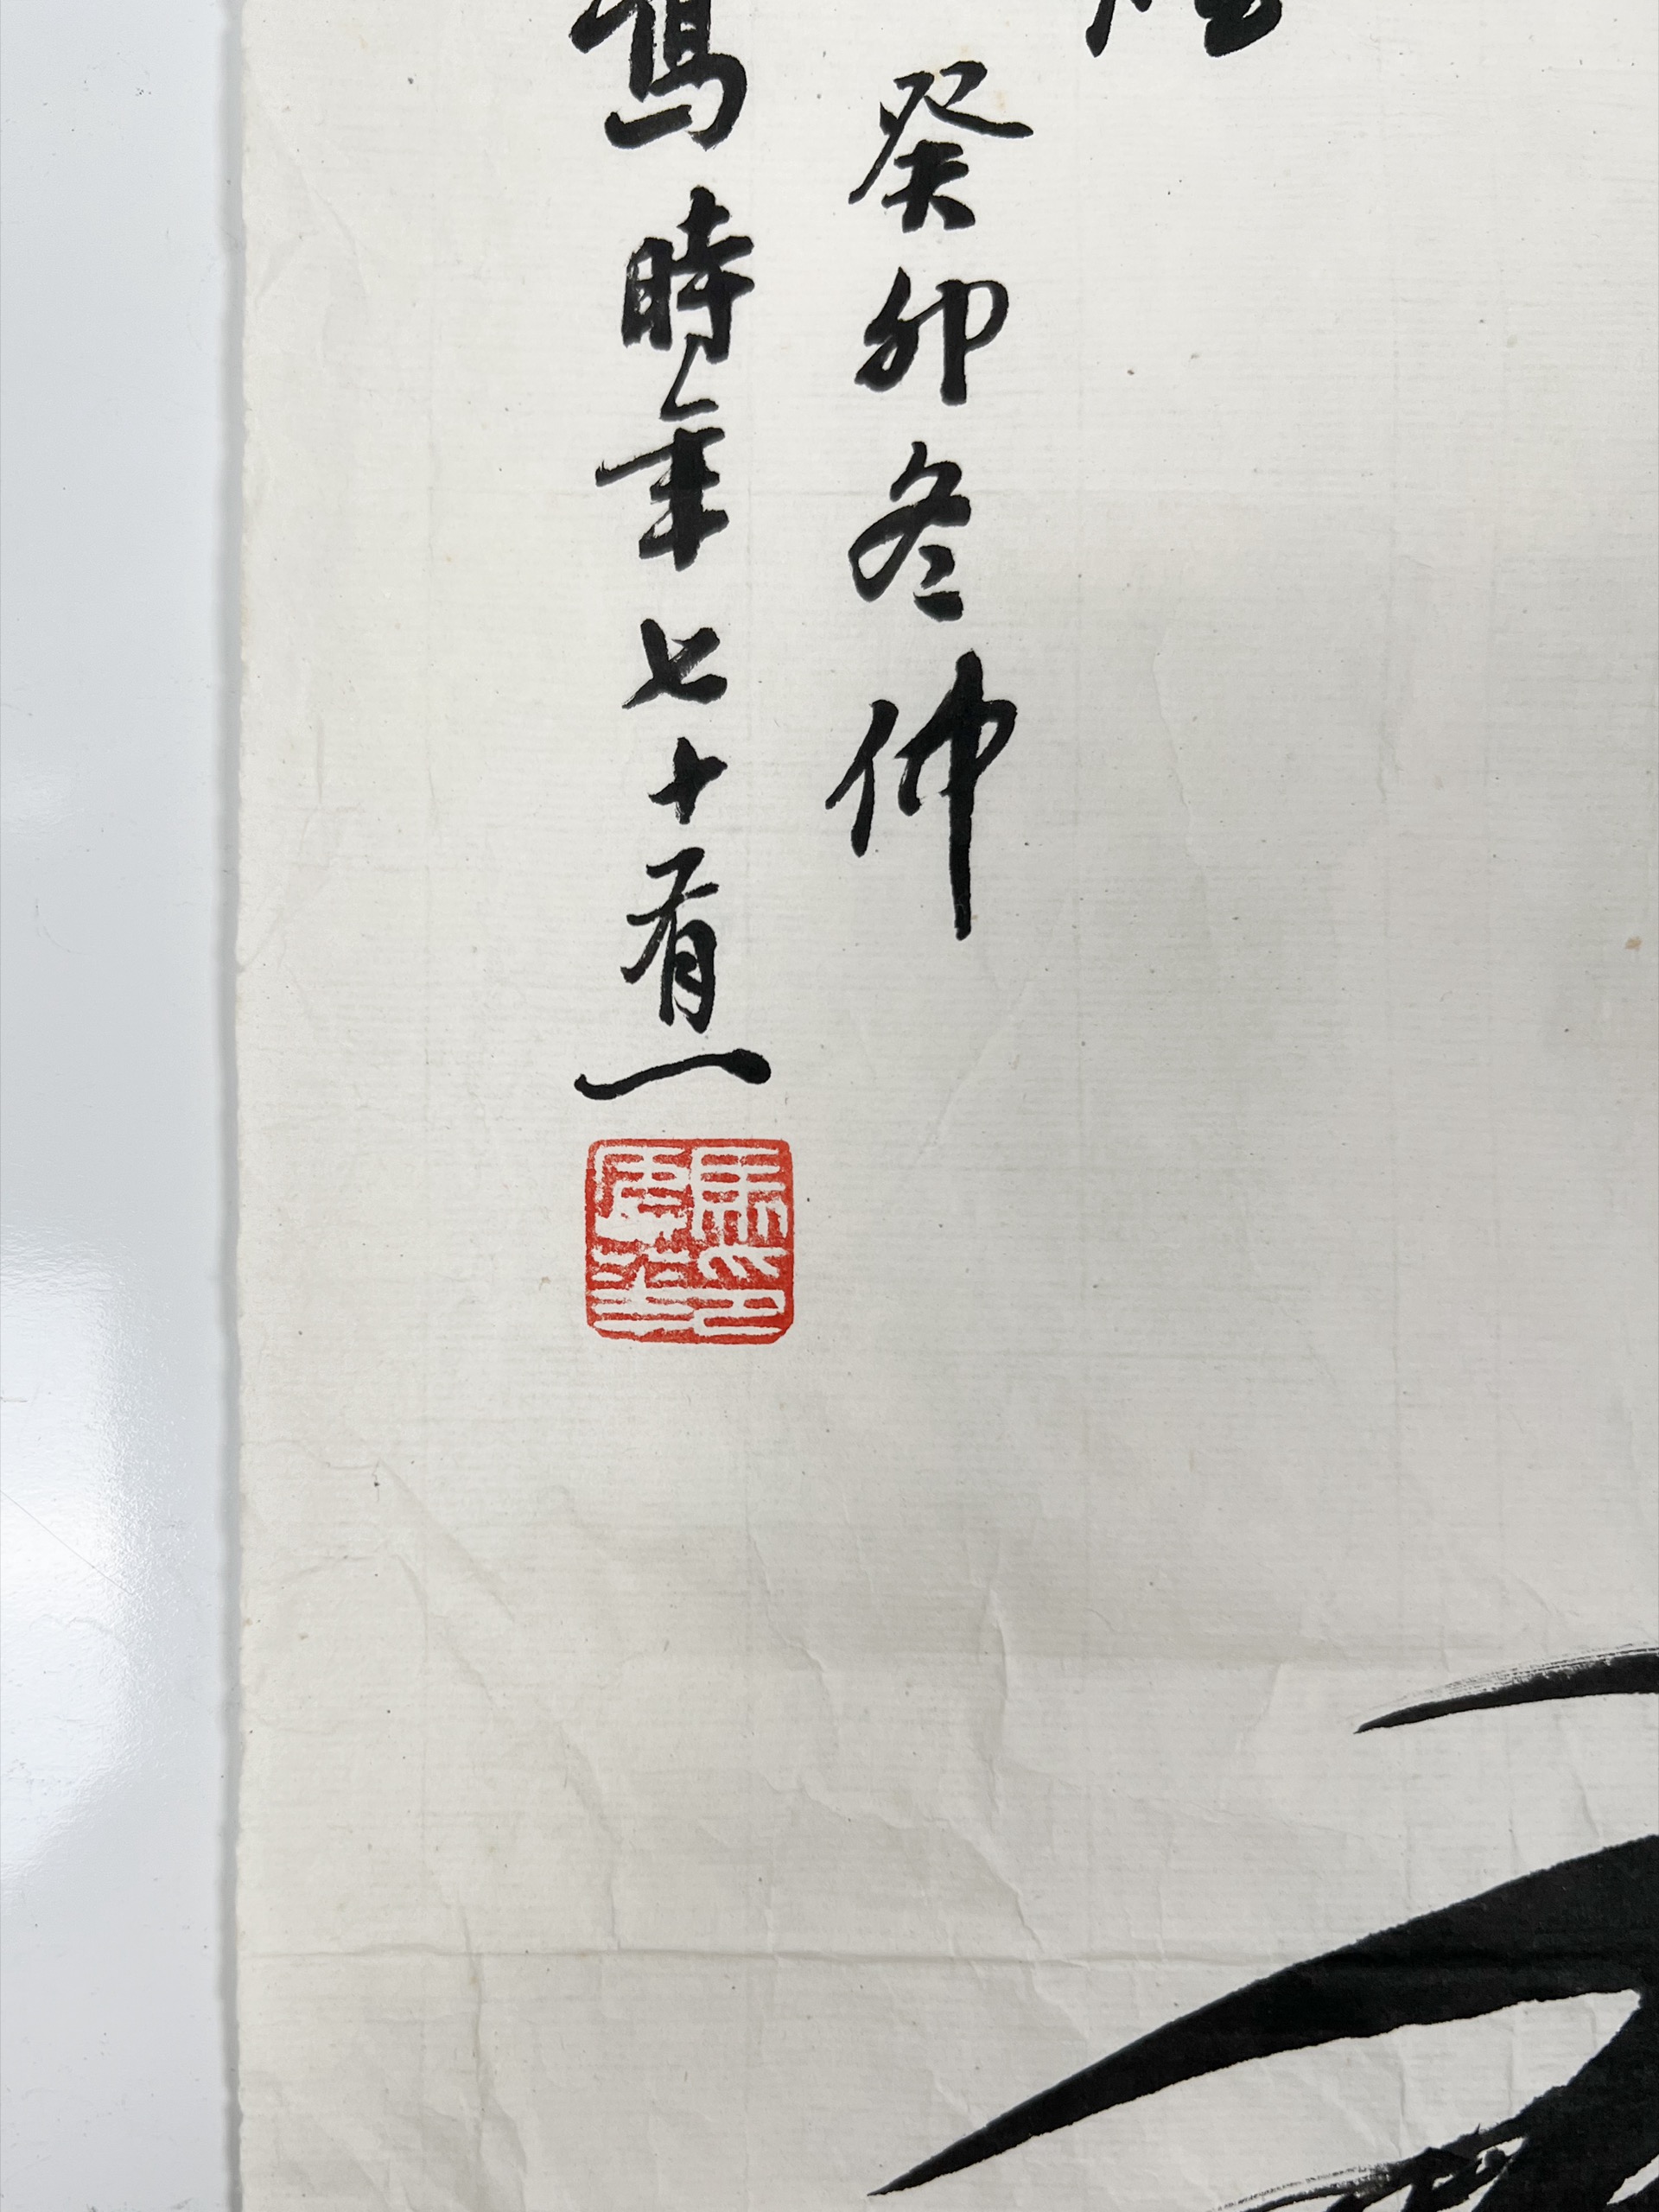 癸卯冬仲
時年七十有一